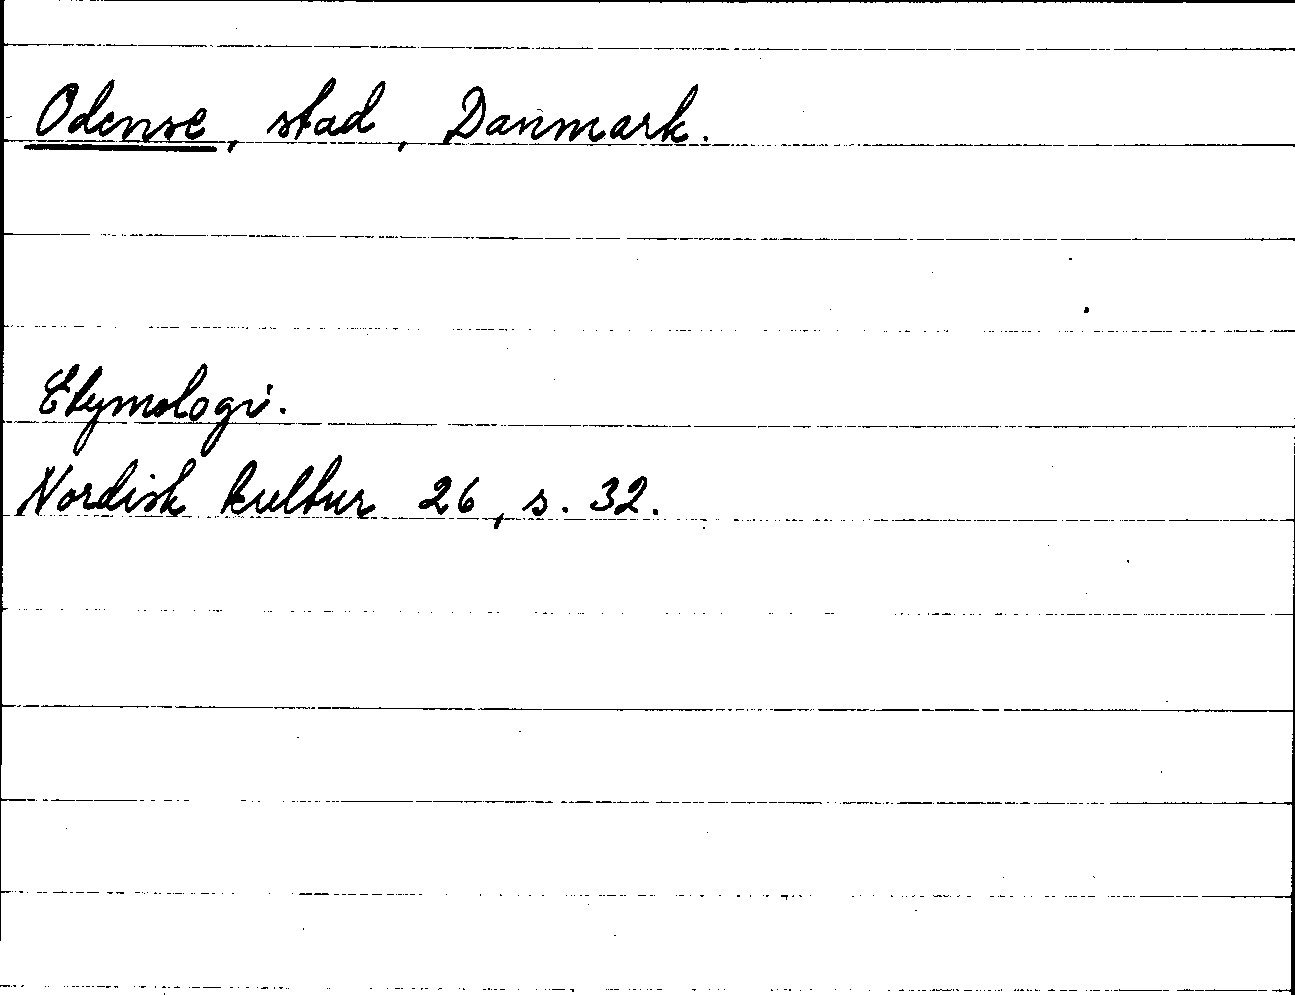 Odense, stad, Danmark.
Etymologi.
Nordisk kultur 26, s. 32.